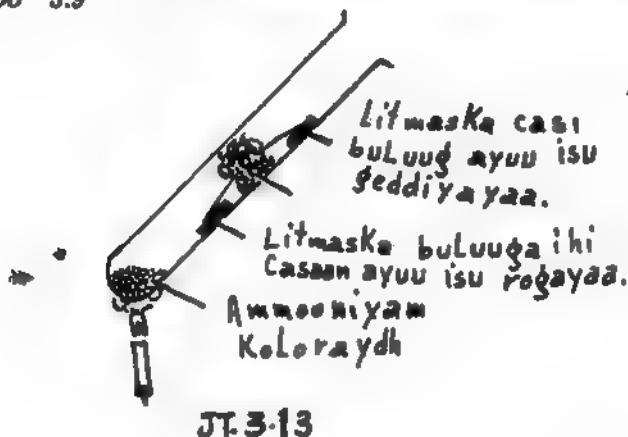 3.9
Litmaska casi
buluug ayuu isu
geddiyayaa.
Litmaska buluuga ihi
Casaan ayuu isu rogayaa.
Ammooniyam
Koloraydh
JT.3.13